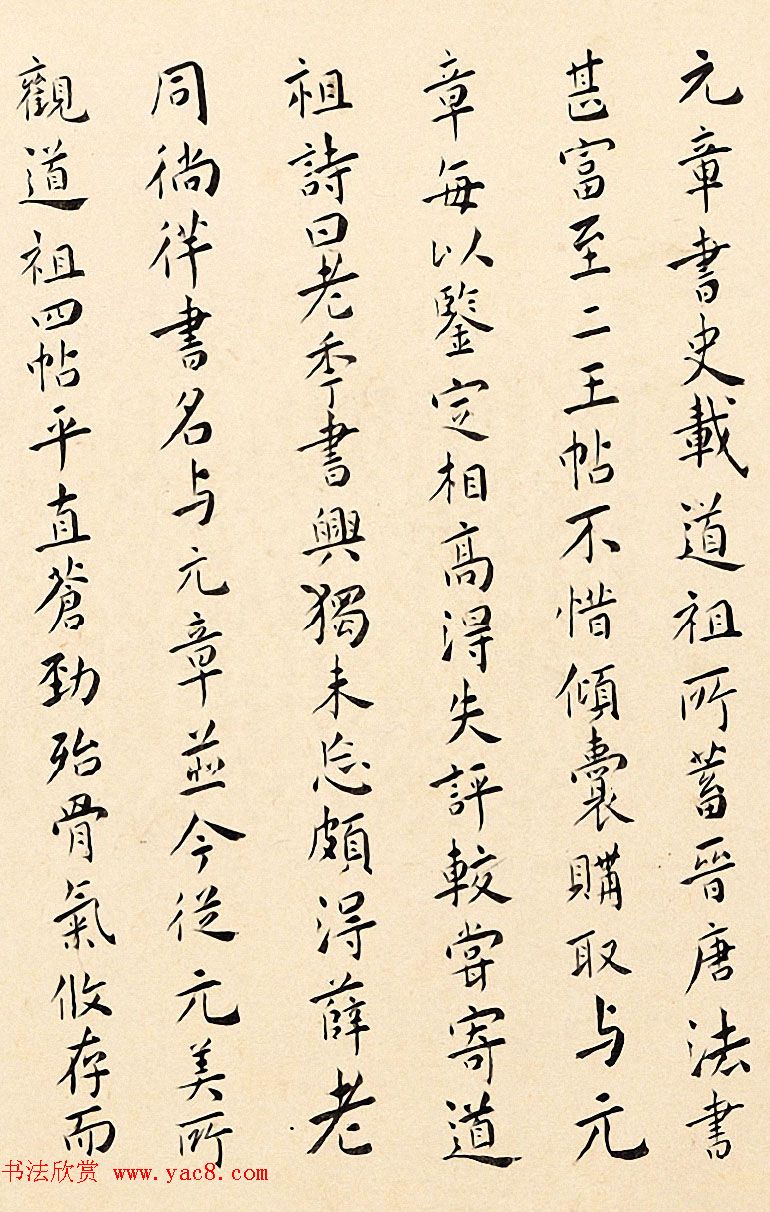 元章書史載道祖所蓄晉唐法書
甚富至二王帖不惜傾囊購取与元
章每以鑒定相高得失評較嘗寄道
祖詩曰老季書興獨未忘頗得薛老
同徜徉書名与元章並今從元美所
觀道祖四帖平直蒼勁殆骨氣攸存而
书法欣赏 www.yac8.com